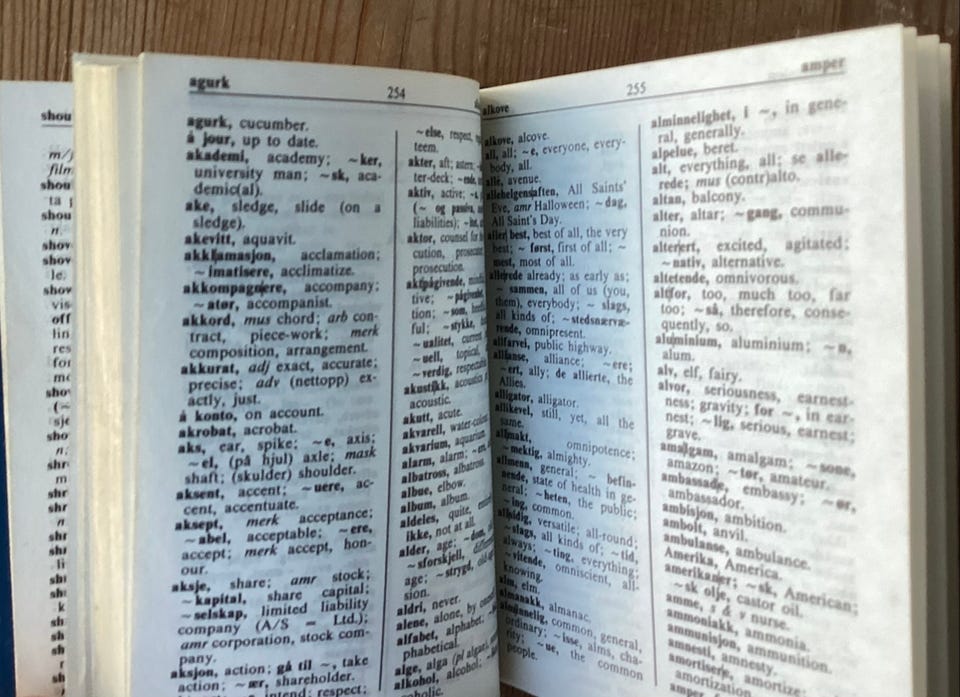 shou
m/j
film
shou
ta p
shou
n.
shov
shov
le.
shov
vis
off
lin
res
for
mo
shov
(~
sje
sho
n.
shr
m
shr
n
shr
agurk
254
agurk, cucumber.
à jour, up to date.
akademi, academy; ~ker,
university man; ~sk, aca-
demic(al).
ake, sledge, slide (on a
sledge).
akevitt, aquavit.
akklamasjon, acclamation;
~imatisere, acclimatize.
akkompagnere, accompany;
~atør, accompanist.
akkord, mus chord; arb con-
tract, piece-work; merk
composition, arrangement.
akkurat, adj exact, accurate;
precise; adv (nettopp) ex-
actly, just.
à konto, on account.
akrobat, acrobat.
aks, ear, spike; ~e, axis;
~el, (på hjul) axle; mask
shaft; (skulder) shoulder.
aksent, accent; ~uere, ac-
cent, accentuate.
aksept, merk acceptance;
~abel, acceptable; ~ere,
accept; merk accept, hon-
our.
aksje, share; amr stock;
~kapital, share capital;
~selskap, limited liability
company (A/S = Ltd.);
amr corporation, stock com-
pany.
aksjon, action; gå til ~, take
action; ~ær, shareholder.
intend; respect;
~else, respect,
teem.
akter, aft; astern;
ter-deck; ~ende,
aktiv, active;
(~ og passiva,
liabilities);
aktor, counsel for
cution, prosecutor
prosecution.
aktpågivende,
tive; ~pågivenhet,
tion; ~som,
ful; ~stykke,
~ualitet,
~uell, topical,
~verdig, respectable
akustikk, acoustics
acoustic.
akutt, acute.
akvarell, water-colour
akvarium, aquarium.
alarm, alarm;
albatross, albatross.
albue, elbow.
album, album.
aldeles, quite,
ikke, not at all.
alder, age; ~dom,
~sforskjell,
age; ~strygd, old
sion.
aldri, never.
alene, alone, by
alfabet, alphabet;
phabetical.
alge, alga (pl algae)
alkohol, alcohol;
coholic.
alkove
255
amper
alkove, alcove.
all, all; ~e, everyone, every-
body, all.
allé, avenue.
allehelgensaften, All Saints'
Eve, amr Halloween; ~dag,
All Saint's Day.
aller|best, best of all, the very
best; ~først, first of all; ~
mest, most of all.
allerede already; as early as;
~sammen, all of us (you,
them), everybody; ~slags,
all kinds of; ~stedsnærvæ-
rende, omnipresent.
allfarvei, public highway.
allianse, alliance; ~ere;
~ert, ally; de allierte, the
Allies.
alligator, alligator.
allikevel, still, yet, all the
same.
allmakt, omnipotence;
~mektig, almighty.
allmenn, general; ~befin-
nende, state of health in ge-
neral; ~heten, the public;
~ing, common.
allsidig, versatile; all-round;
~slags, all kinds of; ~tid,
always; ~ting, everything;
~vitende, omniscient, all-
knowing.
alm, elm.
almanakk, almanac.
alminnelig, common, general,
ordinary; ~isse, alms, cha-
rity; ~ue, the common
people.
alminnelighet, i ~, in gene-
ral, generally.
alpelue, beret.
alt, everything, all; se alle-
rede; mus (contr)alto.
altan, balcony.
alter, altar; ~gang, commu-
nion.
alterert, excited, agitated;
~nativ, alternative.
altetende, omnivorous.
altfor, too, much too, far
too; ~så, therefore, conse-
quently, so.
aluminium, aluminium; ~n,
alum.
alv, elf, fairy.
alvor, seriousness, earnest-
ness; gravity; for ~, in ear-
nest; ~lig, serious, earnest;
grave.
amalgam, amalgam; ~sone,
amazon; ~tør, amateur.
ambassade, embassy; ~ør,
ambassador.
ambisjon, ambition.
ambolt, anvil.
ambulanse, ambulance.
Amerika, America.
amerikaner; ~sk, American;
~sk olje, castor oil.
amme, s & v nurse.
ammoniakk, ammonia.
ammunisjon, ammunition.
amnesti, amnesty.
amortisere, amortize;
amortization
amper